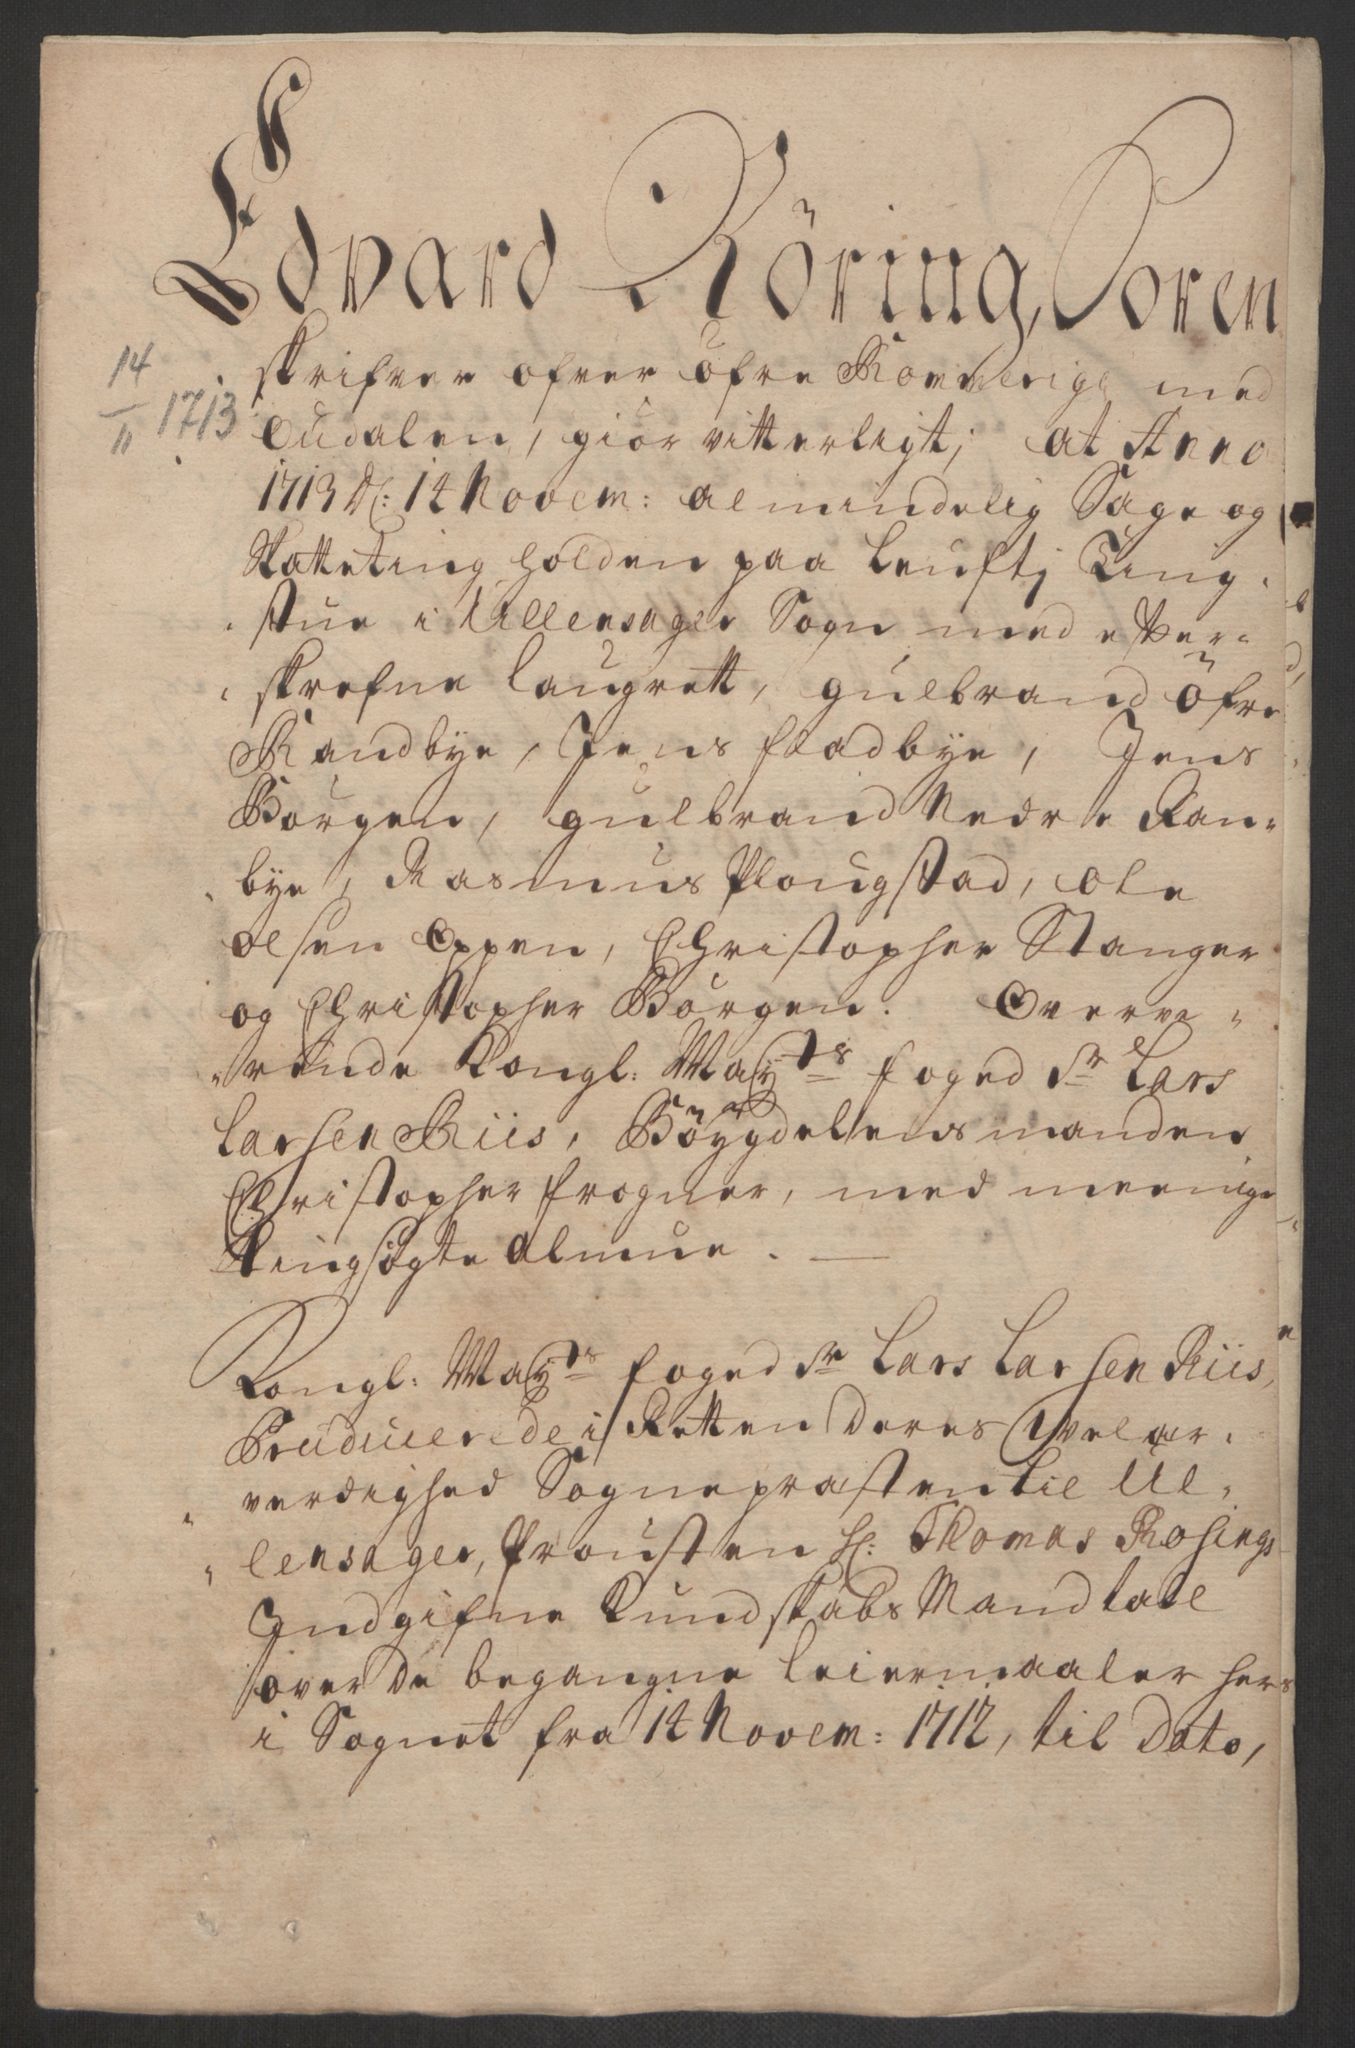 Edvard Röring, Soren
skrifver ofver öfre Rommerige med
14/11 1713
Eudalen, giör vitterligt; at Anno
1713 D: 14 Novem: almindelig Sage og
Skatteting holden paa Leufti Ting
stue i Ullensager Sogn med efter-
skrefne Laugrett, gulbrand öfre
Randbye, Jens Stadbye, Jens
Borgen, gulbrand Nedre Ran-
bye, Rasmus Plougstad, Ole
Olsen Oppen, Christopher Stanger
og Christopher Borgen. Overve-
rende Kongl: Mayts foged Sr Lars
Larsen Riis, Böygdelensmanden
Christopher frogner, med meenige
Tingsögte Almue.
Kongl: Mayts foged Sr Lars Larsen Riis,
Producerede i Retten deres Velær-
verdighed Sognepræsten til Ul-
lensager, Prousten H: Thomas Rosings
Indgifne Kundskabs Mandtall
over de begangne Leiermaaler her
i Sognet fra 14 Novem: 1712, til dato,